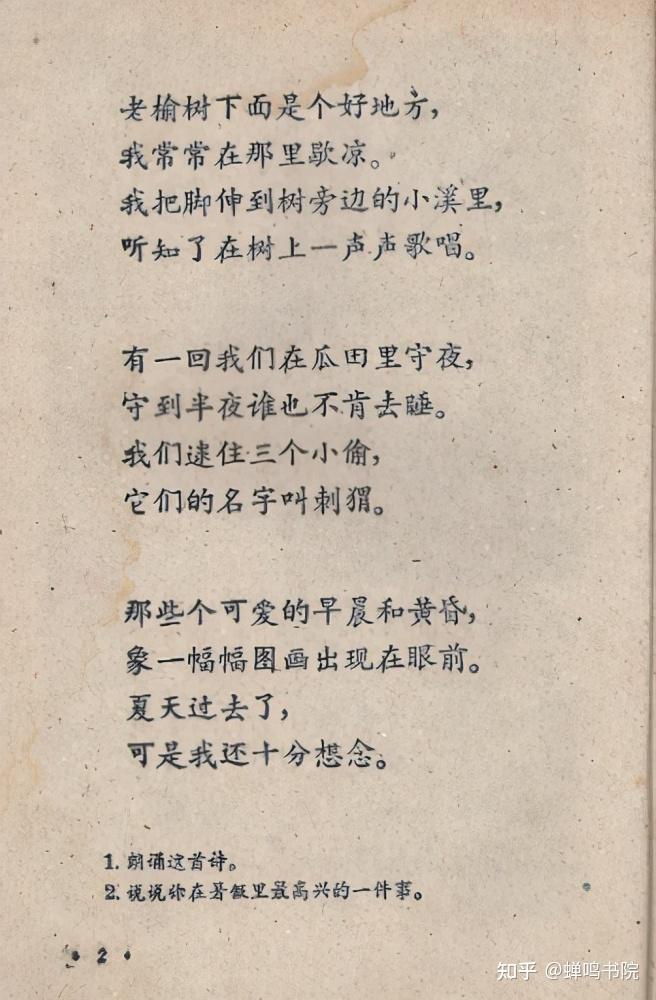 老榆树下面是个好地方，
我常常在那里歇凉。
我把脚伸到树旁边的小溪里，
听知了在树上一声声歌唱。
有一回我们在瓜田里守夜，
守到半夜谁也不肯去睡。
我们逮住三个小偷，
它们的名字叫刺猬。
那些个可爱的早晨和黄昏，
象一幅幅图画出现在眼前。
夏天过去了，
可是我还十分想念。
1. 朗诵这首诗。
2. 说说你在暑假里最高兴的一件事。
• 2 •
知乎 @蝉鸣书院